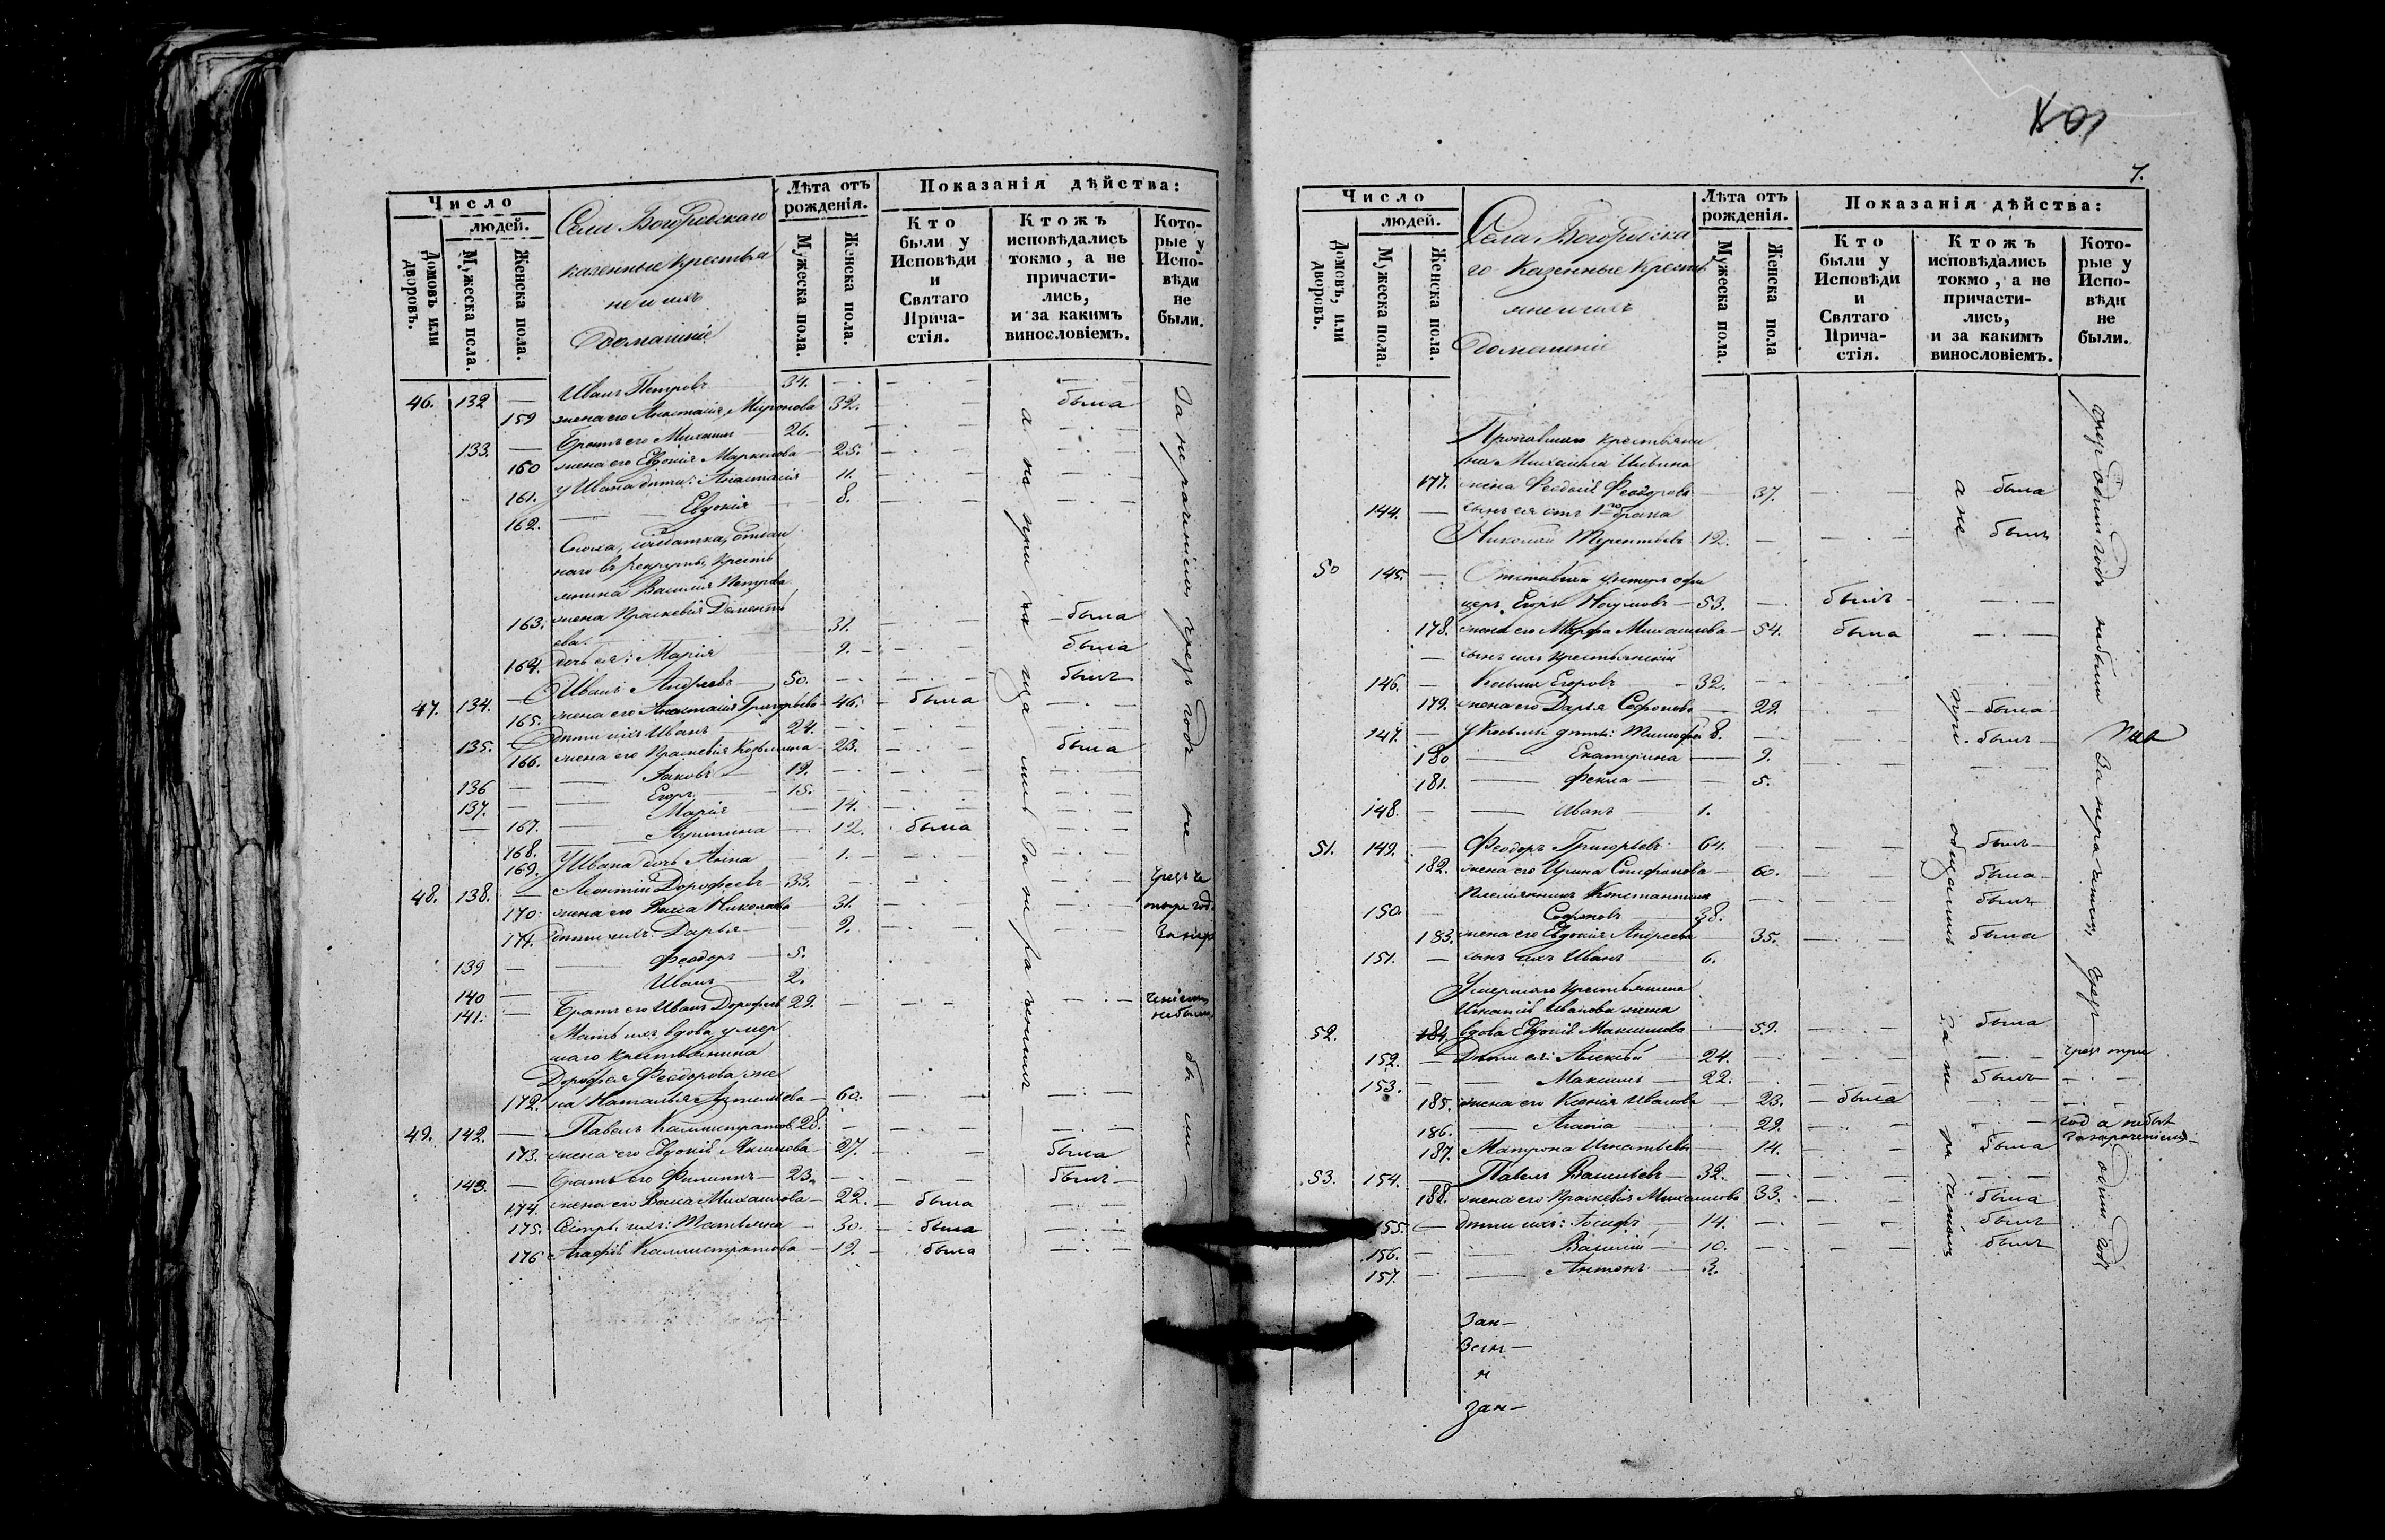 Число
людей.
Домовъ или дворовъ.
Мужеска пола.
Женска пола.
Села Богородскаго
казенные крестья
не и ихъ
домашніе
Лѣта отъ рожденія.
Мужеска пола.
Женска пола.
Показанія дѣйства:
Кто были у Исповѣди и Святаго Прича- стія.
Ктожъ исповѣдались токмо, а не причасти- лись, и за какимъ винословіемъ.
Кото- рые у Испо- вѣди не были.
46. 132 — Иванъ Петровъ 34.
159 жена его Анастасія Миронова 32. была
133. — Братъ его Михаилъ 26.
160 жена его Евдокія Маркелова 25.
161. у Ивана дѣти: Анастасія 11.
162. Евдокія 8.
Сноха, солдатка, отдан
наго въ рекруты, кресть
янина Василія Петрова
163. жена Праскевія Дементь
ева. 31. была
164. дочь ея: Марія 9. была
47. 134. — Иванъ Андреевъ 50. былъ
165. жена его Анастасія Григорьева 46. была
135. Дѣти ихъ Иванъ 24.
166. жена его Праскевія Козьмина 23. была
136 — Іаковъ 19.
137. — Егоръ 15.
— 167. Марія 14.
168. 12. была
169. У Ивана дочь Анна 1.
48. 138. — Леонтій Дорофеевъ 33. чрезъ че
170. жена его Васса Николаева 31. тыре год.
171. дѣти ихъ: Дарья 9. за нера
139 — Феодоръ 5.
140 — Иванъ 2.
141. — Братъ его Иванъ Дорофеевъ 29. ченіемъ не были
Мать ихъ вдова умер
шаго крестьянина
Дорофея Феодорова же
172. на Наталья Артемьева 60.
49. 142. — Павелъ Каллистратовъ 28.
173. жена его Евдокія Якимова 27. была
143. — Братъ его Филиппъ 23. былъ
174. жена его Васса Михаилова 22. была
175. Сестры ихъ: Татьяна 30. была
176 Агафія Каллистратова 19. была
а не при ча ща лись за не ра ченіемъ
За нераченіемъ чрезъ годъ не бы ли
7.
Число
людей.
Домовъ, или дворовъ.
Мужеска пола.
Женска пола.
Села Богородска
го казенные кресть
яне и ихъ
домашніе
Лѣта отъ рожденія.
Мужеска пола.
Женска пола
Показанія дѣйства:
Кто были у Исповѣди и Святаго Прича- стія.
Ктожъ исповѣдались токмо, а не причасти- лись, и за какимъ винословіемъ.
Кото- рые у Испо- вѣди не были.
Пропавшаго крестьяни
на Михаила
177. жена Феодосія Феодорова 37. была
144. — сынъ ея отъ 1го брака
Николай Терентьевъ 12. былъ
50 145. — Отставной унтеръ офи
церъ Егоръ Наумовъ 53. былъ
178. жена его Марфа Михаилова 54. была
— сынъ ихъ крестьянскій
146. — Козьма Егоровъ 32.
179. жена его Дарья Софронова 29. была
147. — У Козьмы дѣти: Тимофей 8. былъ
180 Екатерина 9.
181. Фекла 5.
148. — Иванъ 1.
51. 149. — Феодоръ Григорьевъ 64. былъ
182. жена его Ирина Стефанова 60. была
Племянникъ Константинъ
150. — Софроновъ 38. былъ
183. жена его Евдокія Андреева 35. была
151. — сынъ ихъ Иванъ 6.
Умершаго крестьянина
Игнатія Иванова жена
52. 184. вдова Евдокія Максимова 59. была
152. — Дѣти ея: Алексѣй 24. чрезъ три
153. — Максимъ 22. былъ
185. жена его Ксенія Иванова 23. была
186. Агапія 29. год а не был
187. Матрона Игнатьева 14. была за нераченіемъ
53. 154. — Павелъ Васильевъ 32.
188. жена его Праскевія Михаилова 33. была
155. — дѣти ихъ: Іосифъ 14. былъ
156. — Василій 10. былъ
157. — Антонъ 3.
а не при общались за не ра ченіемъ
чрезъ одинъ годъ небыли
за нераченіемъ чрезъ одинъ годъ
Зан—
н
Зан—